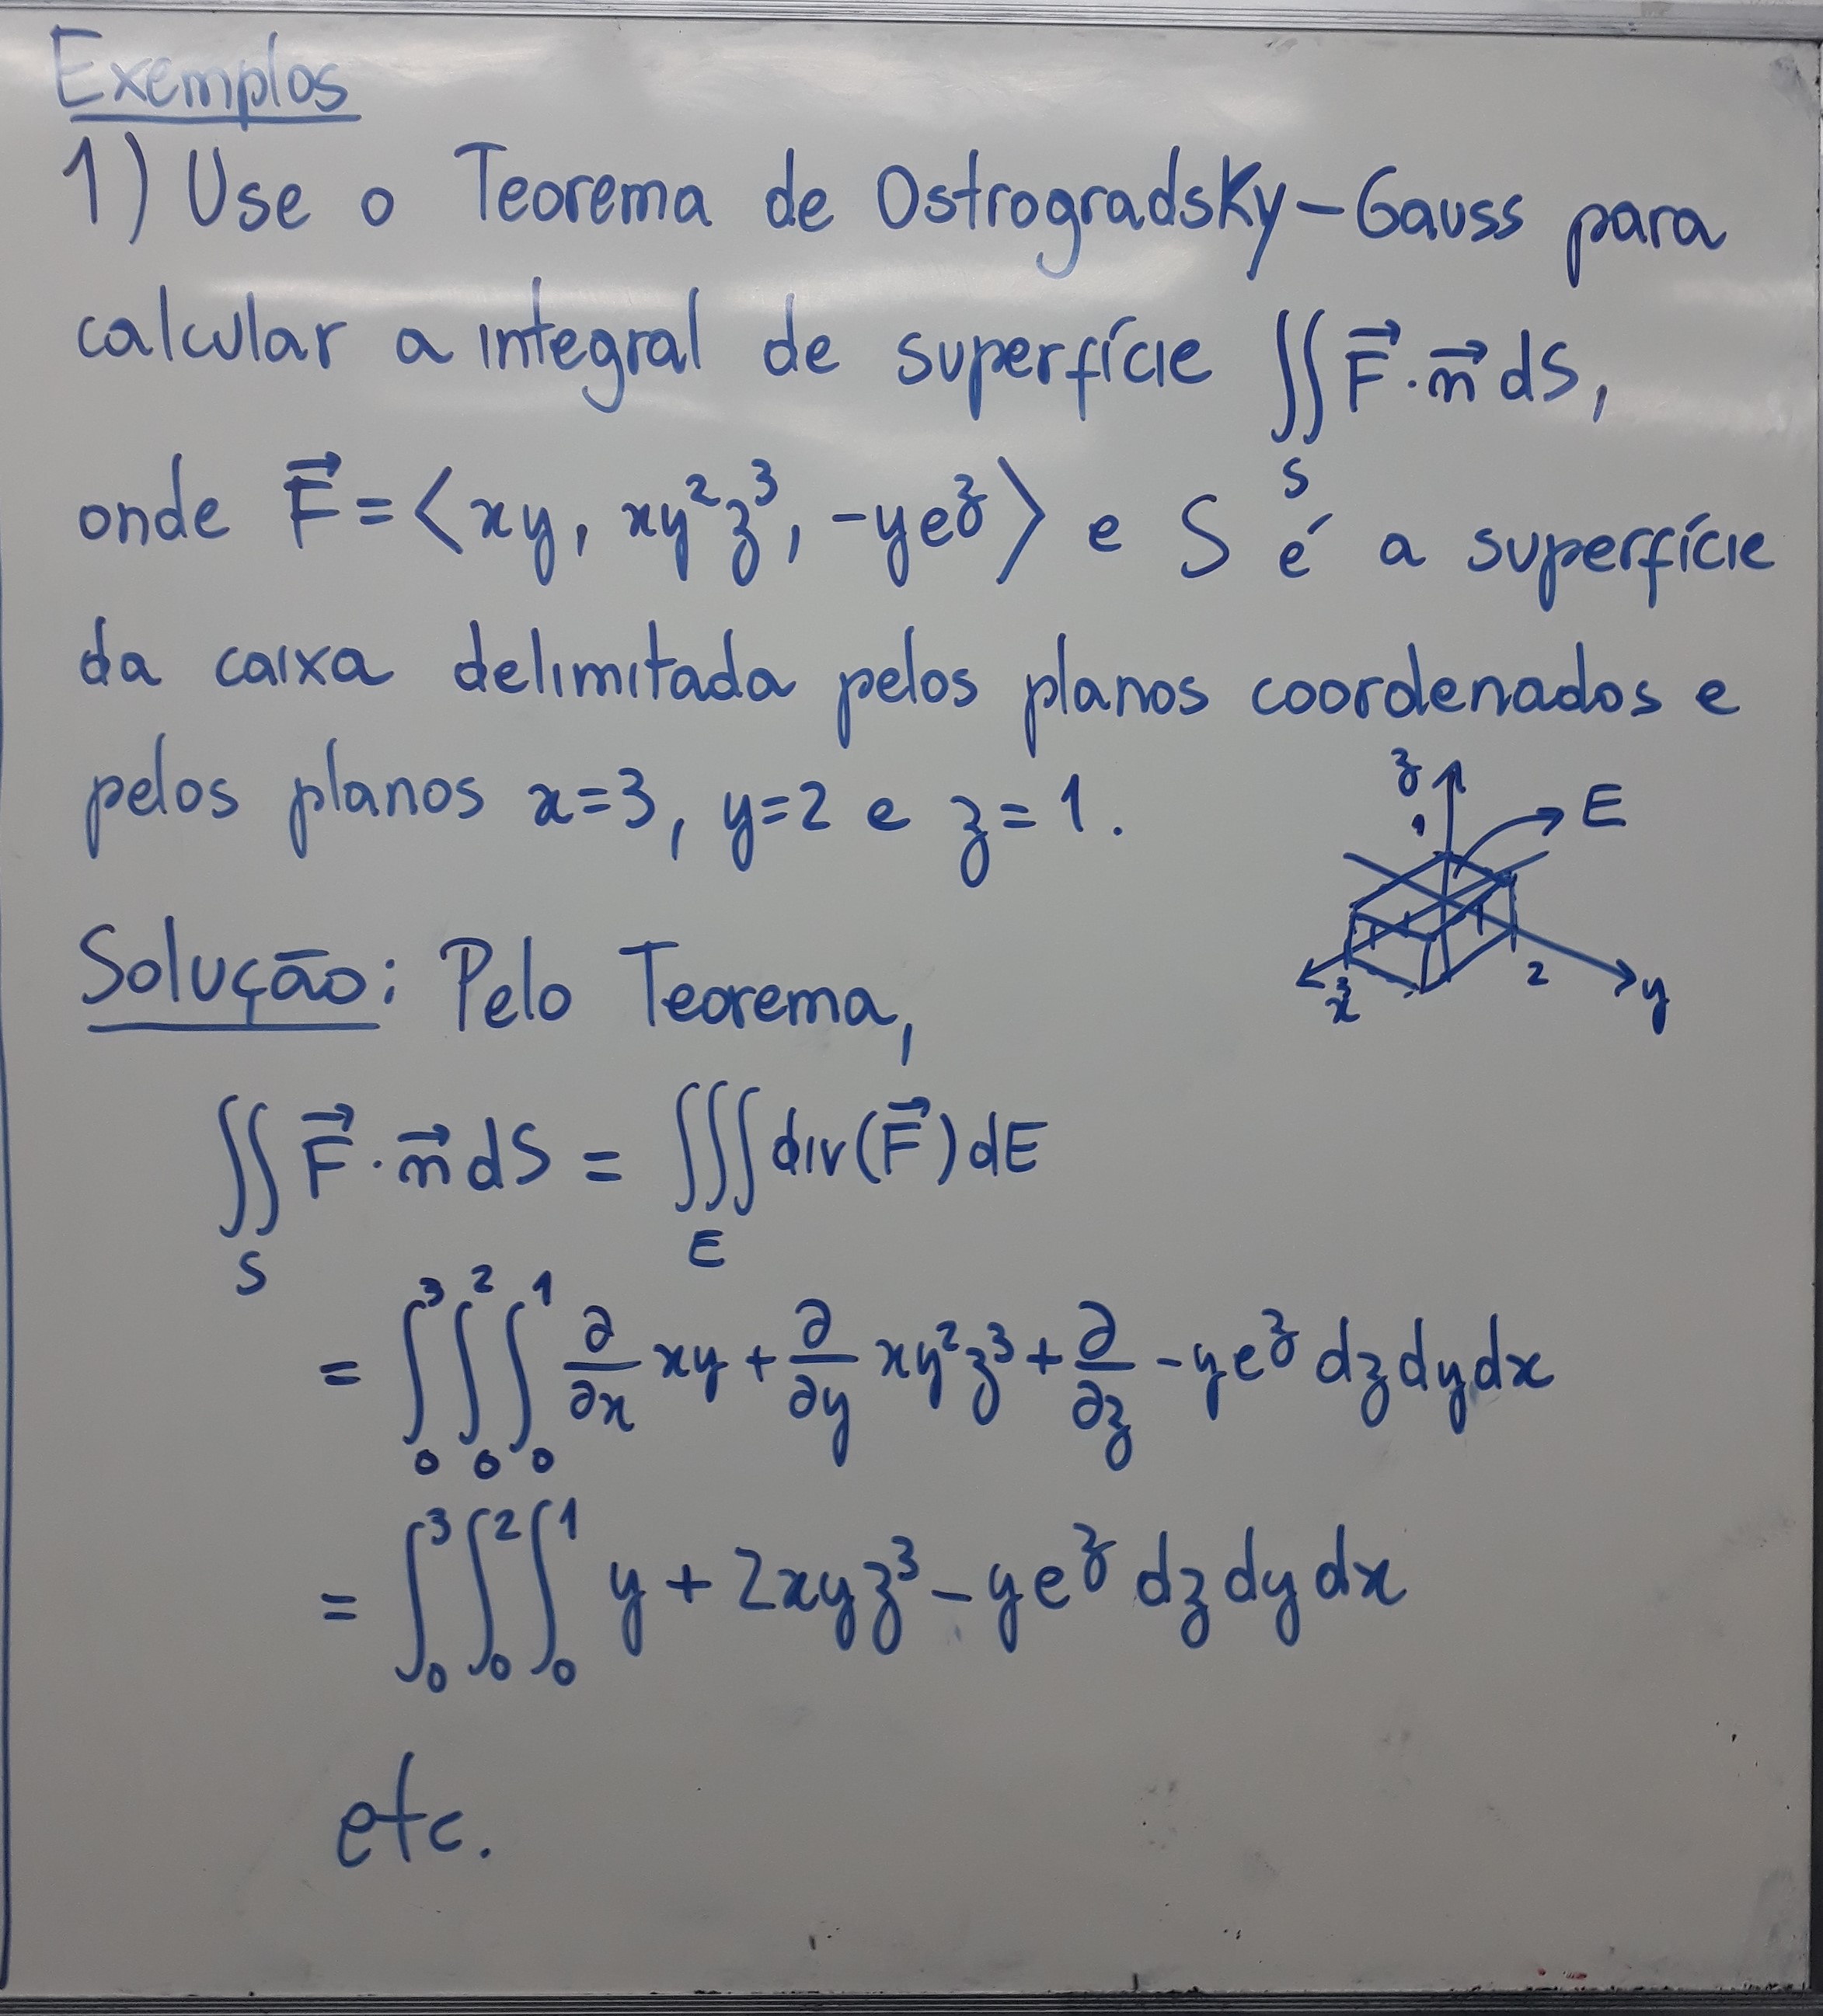 Exemplos
1) Use o Teorema de Ostrogradsky-Gauss para
calcular a integral de superfície ∬_S F⃗ · n⃗ dS,
onde F⃗ = ⟨xy, xy²z³, -ye^z⟩ e S é a superfície
da caixa delimitada pelos planos coordenados e
pelos planos x=3, y=2 e z=1.
z
1
E
3
x
2
y
Solução: Pelo Teorema,
∬_S F⃗ · n⃗ dS = ∭_E div(F⃗) dE
= ∫_0^3 ∫_0^2 ∫_0^1 ∂/∂x xy + ∂/∂y xy²z³ + ∂/∂z -ye^z dz dy dx
= ∫_0^3 ∫_0^2 ∫_0^1 y + 2xyz³ - ye^z dz dy dx
etc.